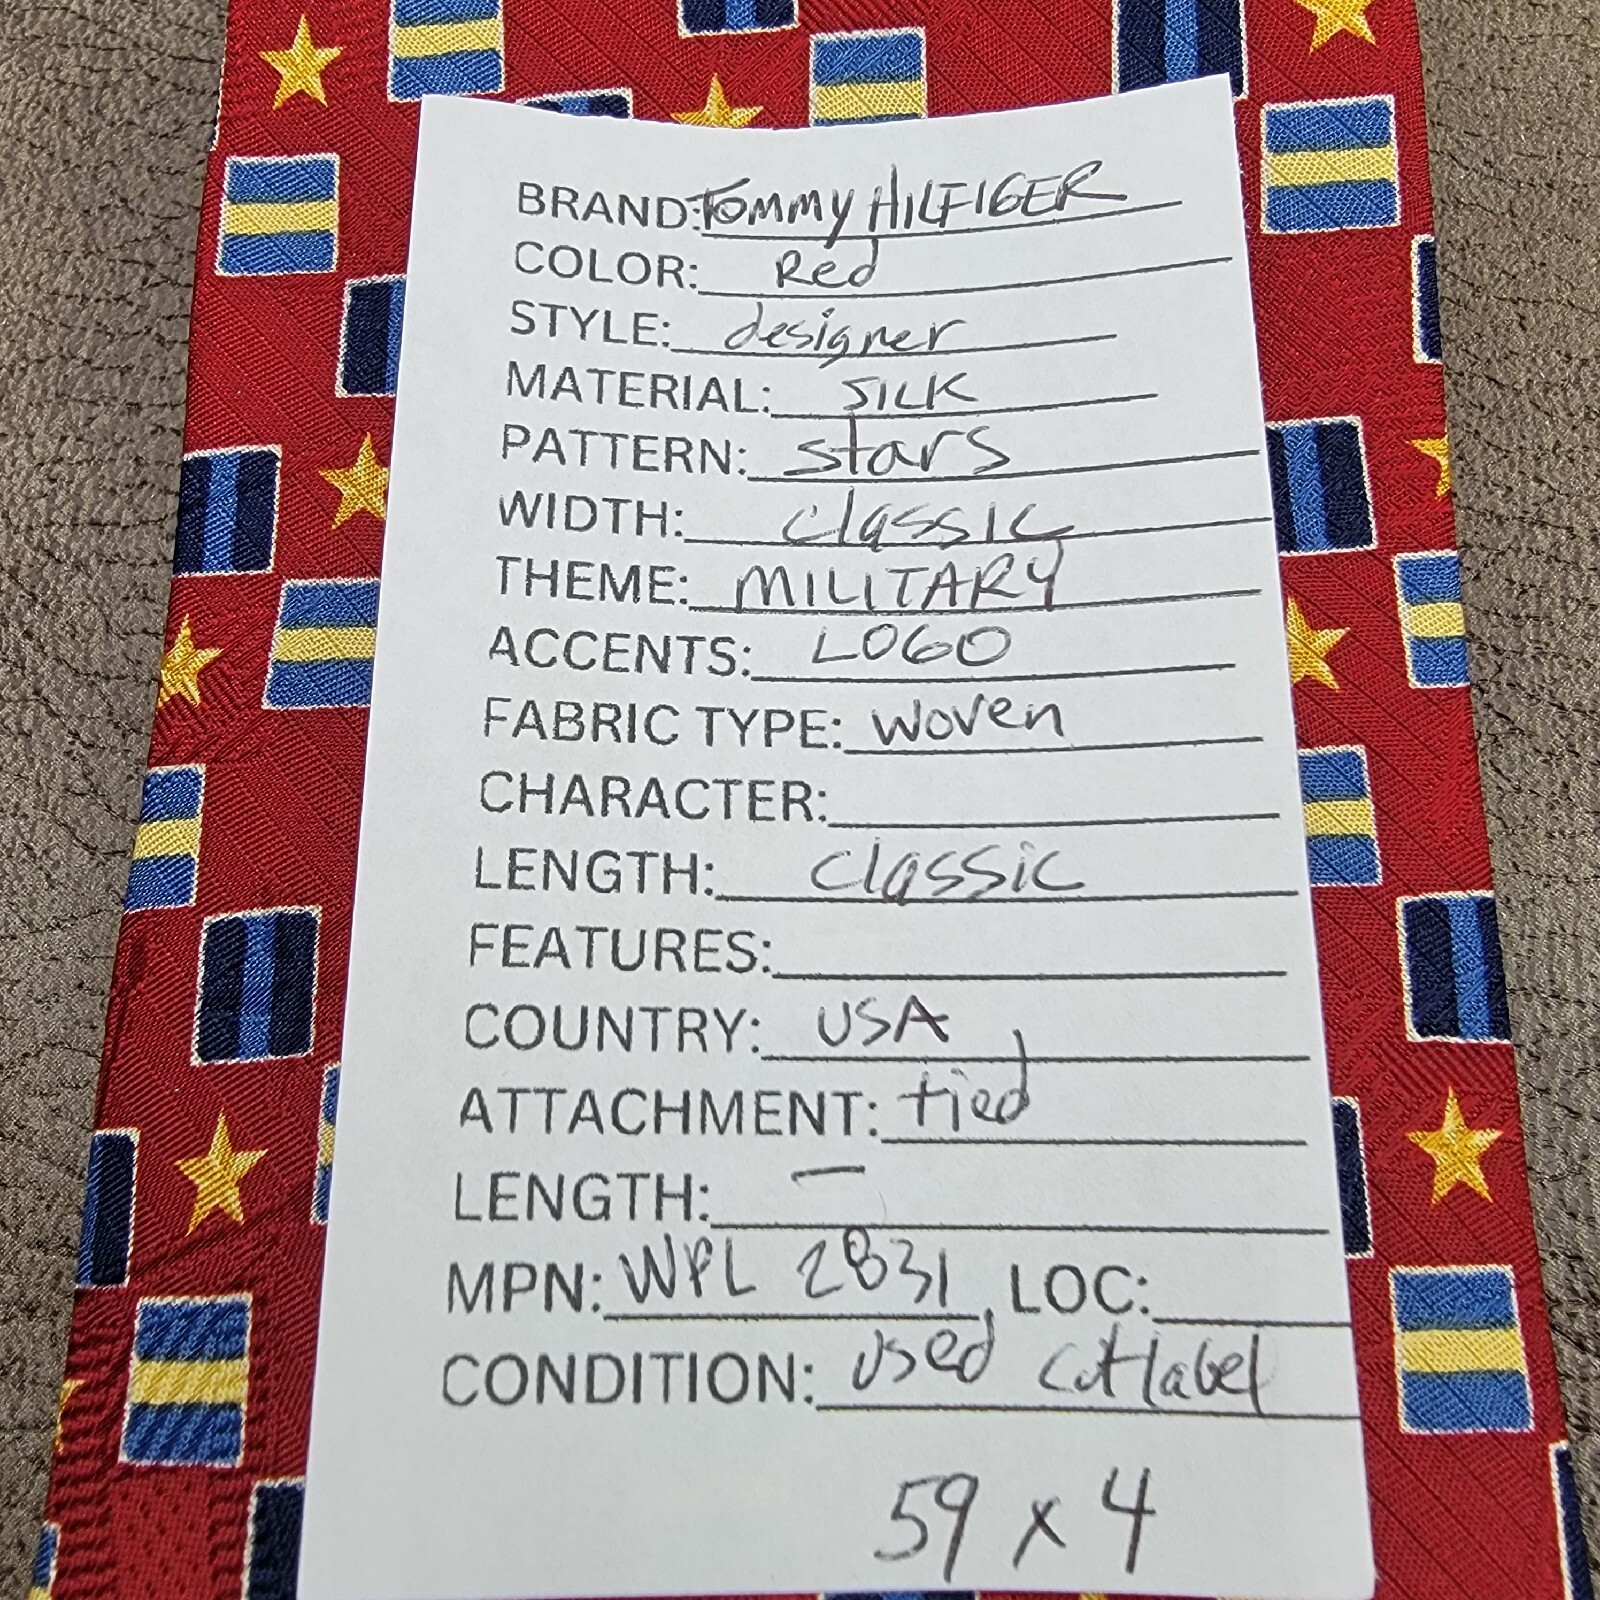 BRAND: Tommy HILFIGER
COLOR: Red
STYLE: designer
MATERIAL: SILK
PATTERN: stars
WIDTH: classic
THEME: MILITARY
ACCENTS: LOGO
FABRIC TYPE: woven
CHARACTER:
LENGTH: classic
FEATURES:
COUNTRY: USA
ATTACHMENT: tied
LENGTH: —
MPN: WPL 2831 LOC:
CONDITION: used cut label
59 x 4